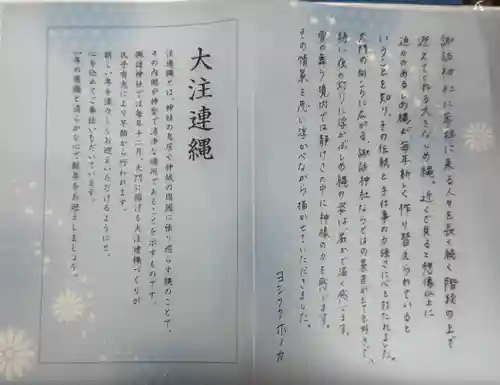 諏訪神社に参拝に来る人々を長く続く階段の上で
迎えてくれる大きなしめ縄。近くで見ると想像以上に
迫力のあるしめ縄が毎年新しく作り替えられていると
いうことを知り、その伝統と手仕事の力強さに心を打たれました。
大門の向こうに広がる諏訪神社ならではの景色がとても好きで、
特に夜の灯りに浮かぶしめ縄の姿は、厳かで温く感じます。
雪の舞う境内では静けさの中に神様の力を感じます。
その情景を思い浮かべながら描かせていただきました。
ヨシフクホノカ
大注連縄
注連縄とは、神社の鳥居や神域の周囲に張り巡らす縄のことで、
その内側が神聖で清浄な場所であることを示すものです。
諏訪神社では毎年十二月、大門に掲げる大注連縄づくりが
氏子有志により早朝から行われます。
新しい年を清々しくお迎えいただけるようにと、
心を込めてご奉仕いただいています。
一年の感謝と清らかな心で新年をお迎えしましょう。